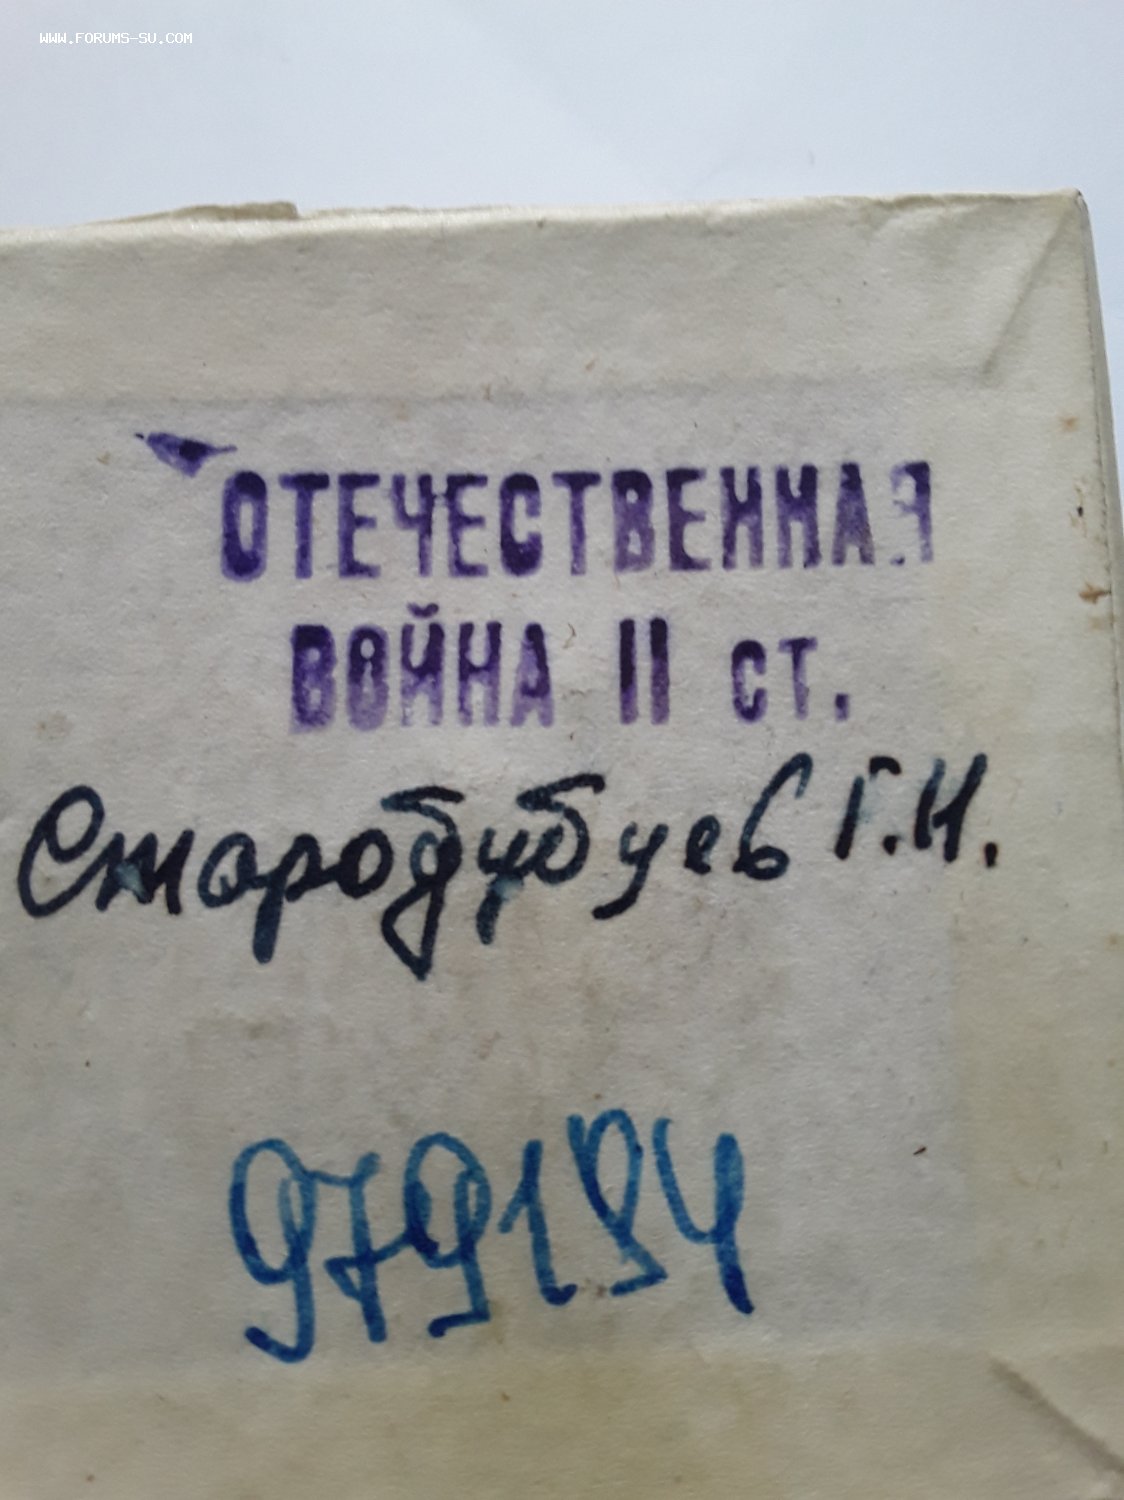 WWW.FORUMS-SU.COM
ОТЕЧЕСТВЕННАЯ
ВОЙНА II ст.
Стародубцев Г.Н.
979194